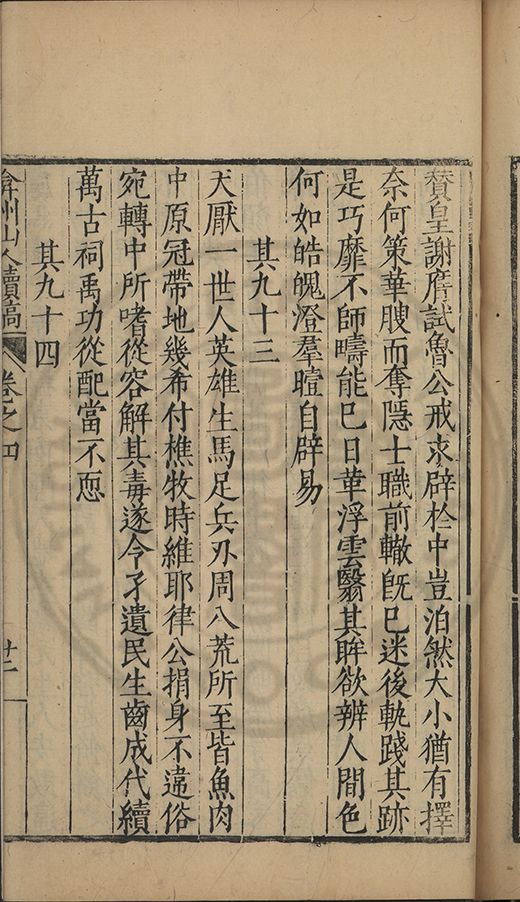 贊皇謝膺試魯公戒求辟於中豈泊然大小猶有擇
奈何策華腴而奪隱士職前轍旣已迷後軌踐其跡
是巧靡不師疇能巳日華浮雲翳其眸欲辨人間色
何如皓魄澄羣曀自辟易
其九十三
天厭一世人英雄生馬足兵刃周八荒所至皆魚肉
中原冠帶地幾希付樵牧時維耶律公捐身不違俗
宛轉中所嗜從容解其毒遂令孑遺民生齒成代續
萬古祠禹功從配當不恧
其九十四
弇州山人續稿 卷之四 廿二